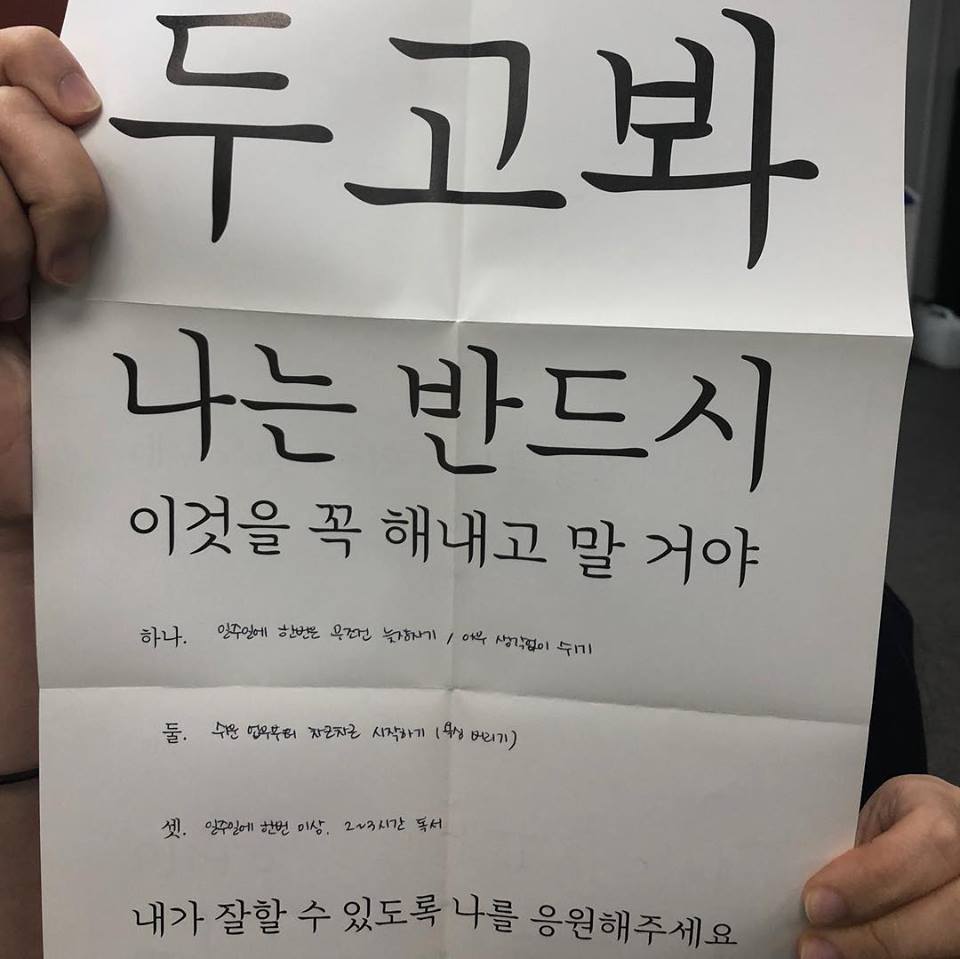 두고봐
나는 반드시
이것을 꼭 해내고 말 거야
하나. 일주일에 한번은 무조건 늦잠자기 / 아무 생각없이 쉬기
둘. 쉬운 업무부터 차근차근 시작하기 ( 버리기)
셋. 일주일에 한번 이상, 2~3시간 독서
내가 잘할 수 있도록 나를 응원해주세요